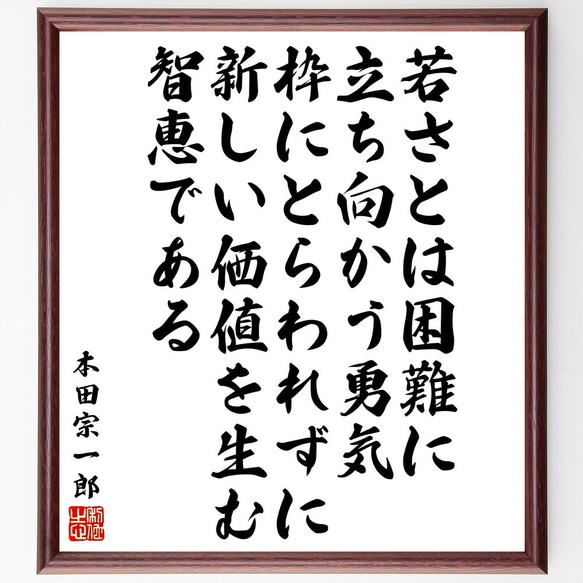 若さとは困難に
立ち向かう勇気
枠にとらわれずに
新しい価値を生む
智恵である
本田宗一郎